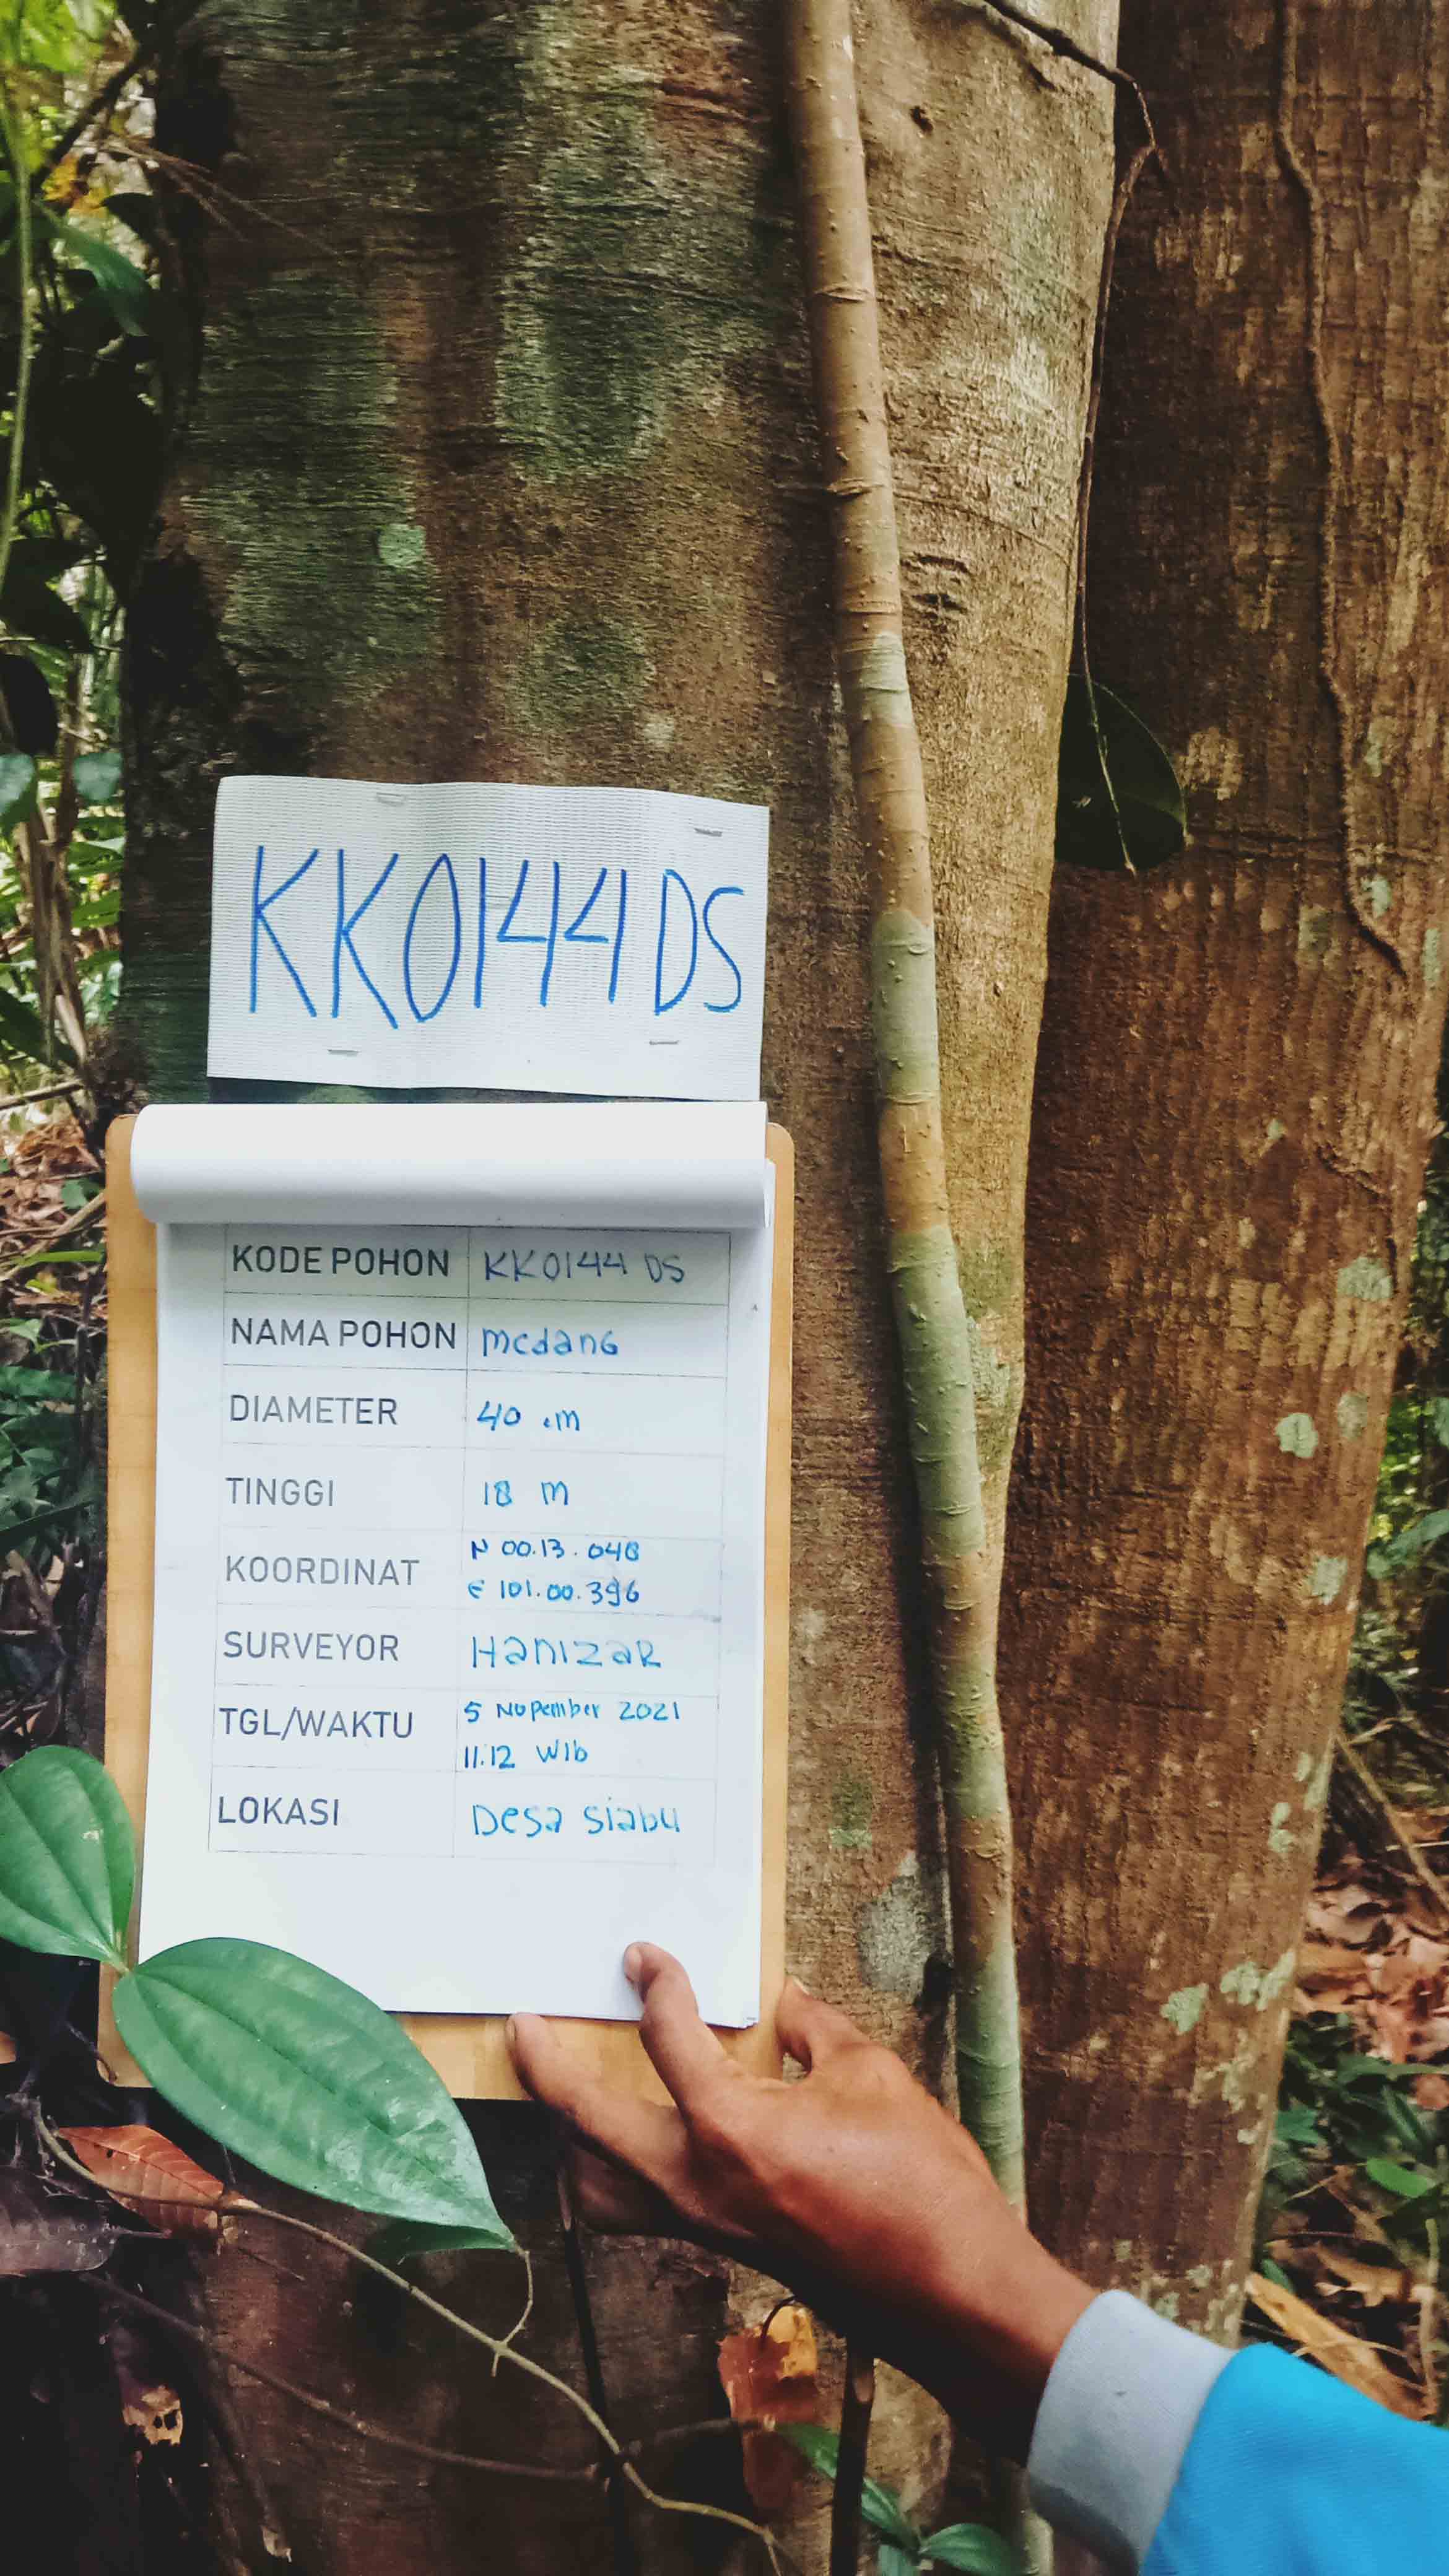 KK0144DS
KODE POHON KK0144 DS
NAMA POHON medanG
DIAMETER 40 cm
TINGGI 18 m
KOORDINAT N 00.13.048
E 101.00.396
SURVEYOR HanizaR
TGL/WAKTU 5 Nopember 2021
11.12 Wib
LOKASI Desa Siabu